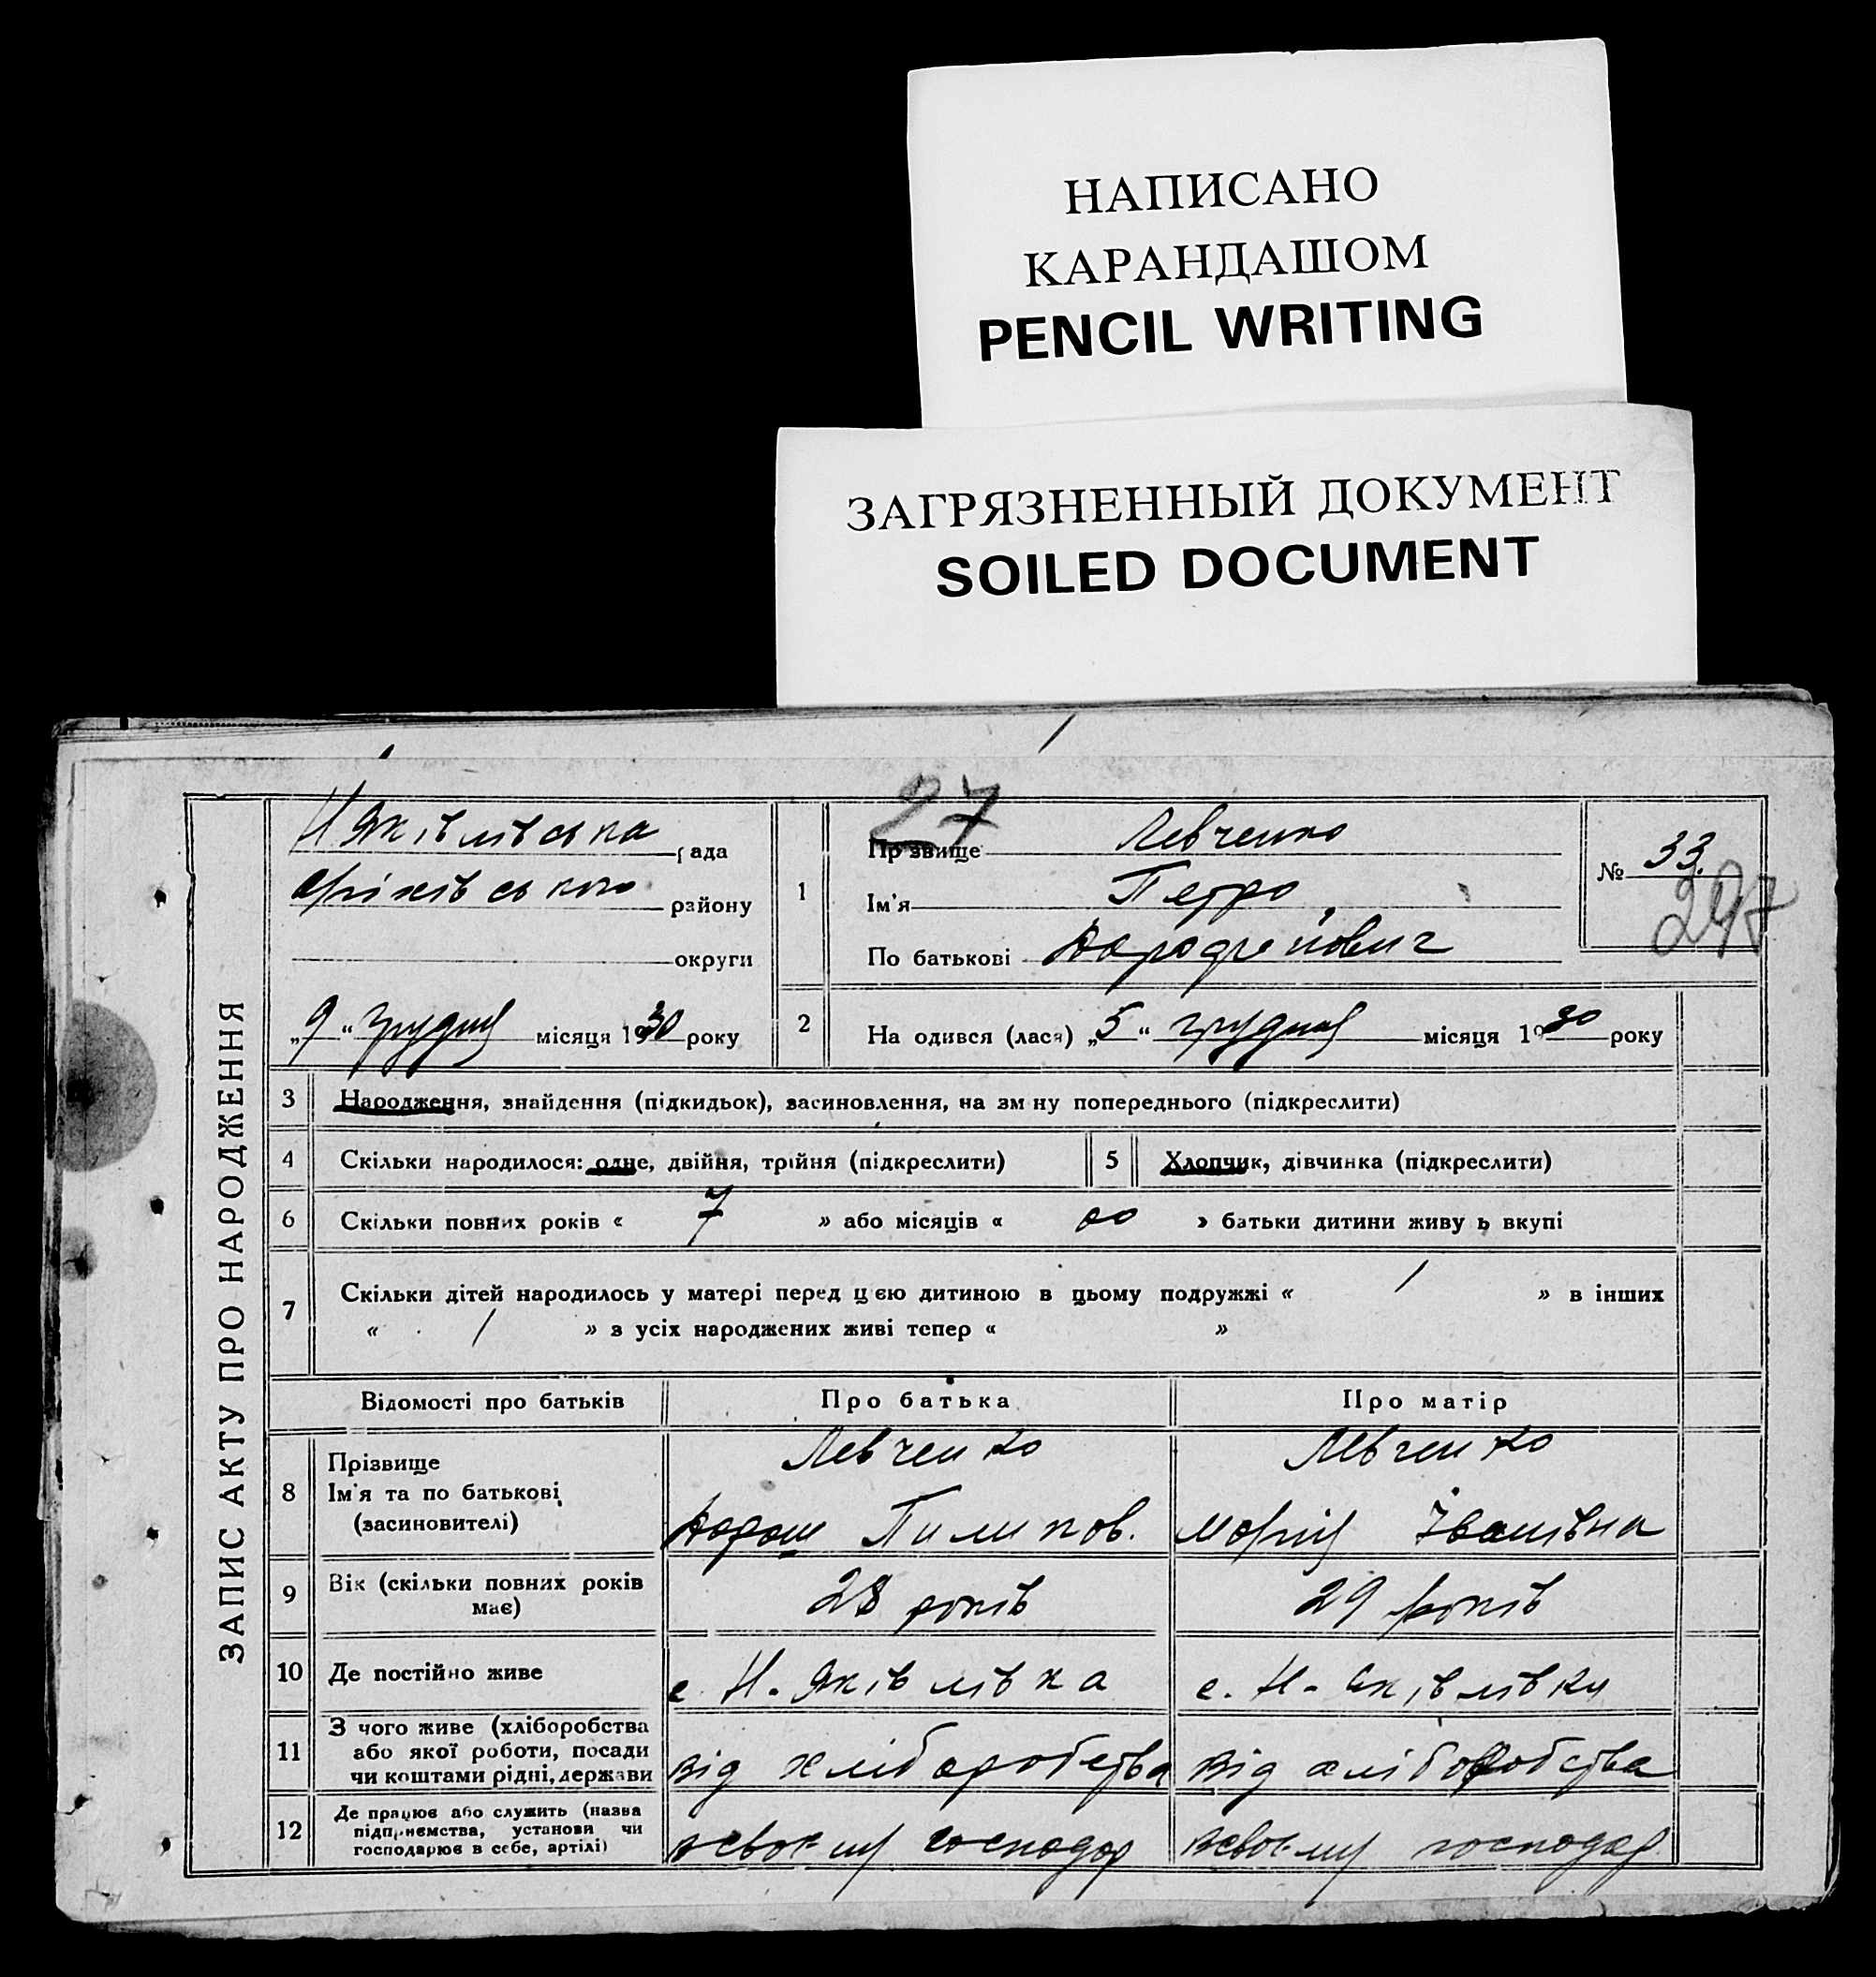 НАПИСАНО
КАРАНДАШОМ
PENCIL WRITING
ЗАГРЯЗНЕННЫЙ ДОКУМЕНТ
SOILED DOCUMENT
ЗАПИС АКТУ ПРО НАРОДЖЕННЯ
27
Н Яківлівська рада
Оріхівського району
округи
„9“ грудня місяця 1930 року
1
Прізвище Левченко
Ім'я Петро
По батькові
№ 33.
297
2 На одився (лася) „5“ грудня місяця 1930 року
3 Народження, знайдення (підкидьок), засиновлення, на зм ну попереднього (підкреслити)
4 Скільки народилося: одне, двійня, трійня (підкреслити)
5 Хлопчик, дівчинка (підкреслити)
6 Скільки повних років « 7 » або місяців « 00 » батьки дитини живу ь вкупі
7 Скільки дітей народилось у матері перед цією дитиною в цьому подружжі « / » в інших
« / » з усіх народжених живі тепер « »
Відомості про батьків Про батька Про матір
8 Прізвище Левченко Левченко
Ім'я та по батькові Пилипов. Марія Іванівна
(засиновителі)
9 Вік (скільки повних років має) 28 років 29 років
10 Де постійно живе с. Н. Яківлівка с. Н-Яківлівки
11 З чого живе (хліборобства або якої роботи, посади чи коштами рідні, держави від хліборобства від хліборобства
12 Де працює або служить (назва підприємства, установи чи господарює в себе, артілі) всвоєму господар всвоєму господар.